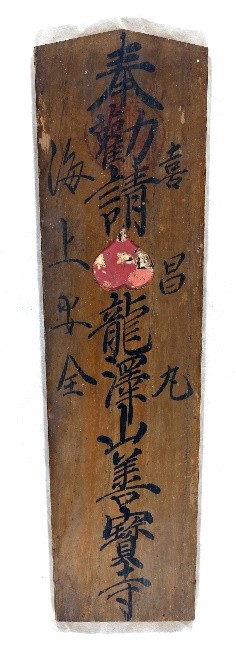 喜昌丸
奉勸請龍澤山善寳寺
海上安全